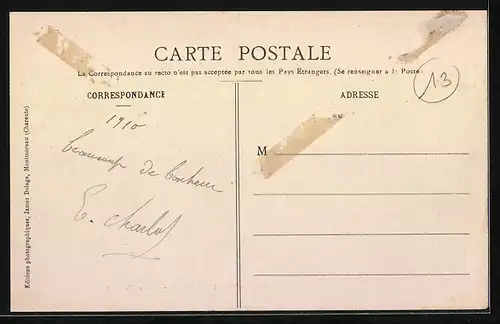 CARTE POSTALE
La Correspondance au recto n'est pas acceptée par tous les Pays Étrangers. (Se renseigner à la Poste)
13
CORRESPONDANCE
ADRESSE
1910
beaucoup de bonheur
E. Charlot
M
Editions photographiques, James Dolage, Montmoreau (Charente)